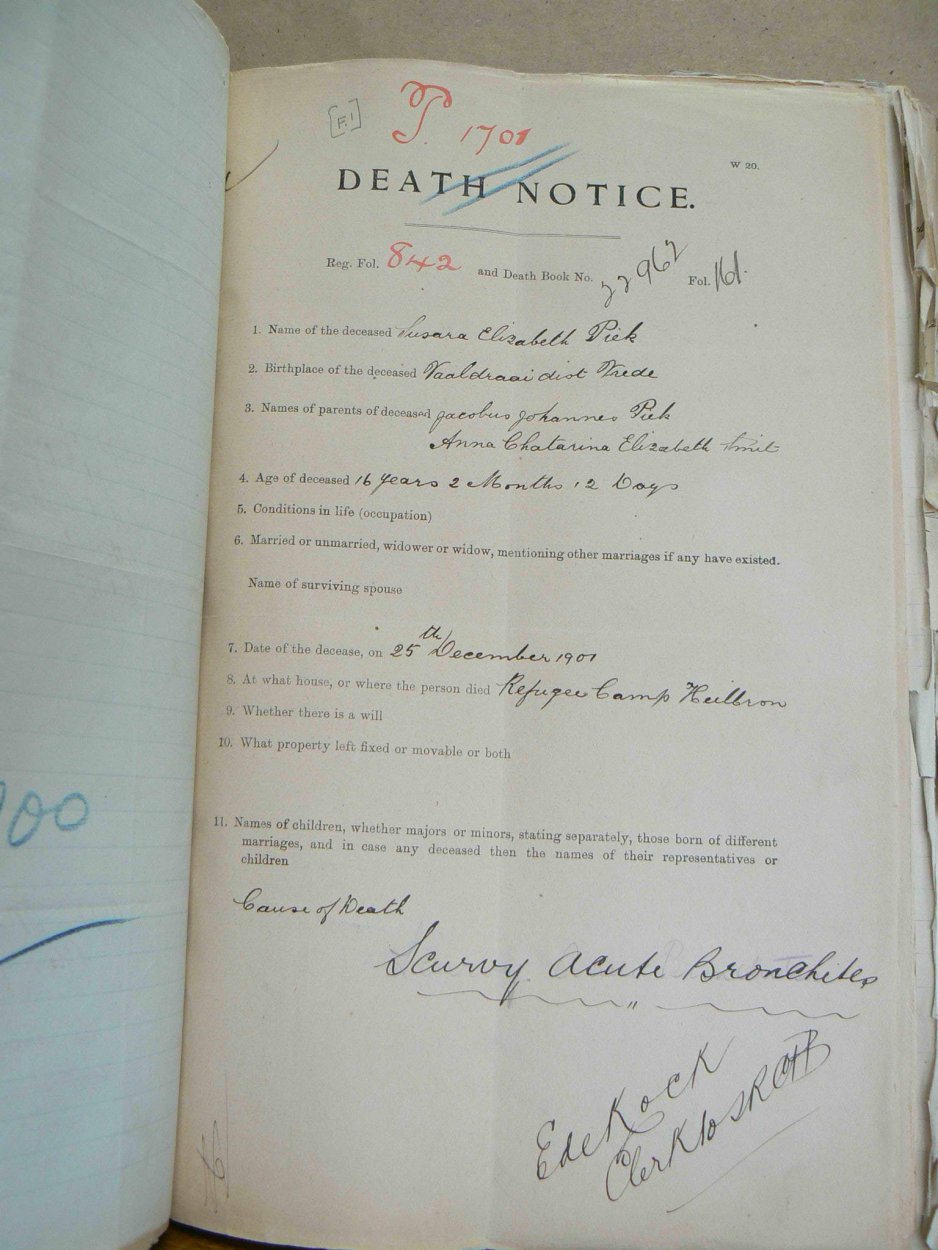 [F.1]
P. 1701
W 20.
DEATH NOTICE.
Reg. Fol. 842 and Death Book No. 22962 Fol. 161.
1. Name of the deceased Susara Elizabeth Piek
2. Birthplace of the deceased Vaaldraai dist Vrede
3. Names of parents of deceased Jacobus Johannes Piek
Anna Chatarina Elizabeth Smit
4. Age of deceased 16 years 2 Months 12 Days
5. Conditions in life (occupation)
6. Married or unmarried, widower or widow, mentioning other marriages if any have existed.
Name of surviving spouse
7. Date of the decease, on 25th December 1901
8. At what house, or where the person died Refugee Camp Heilbron
9. Whether there is a will
10. What property left fixed or movable or both
11. Names of children, whether majors or minors, stating separately, those born of different
marriages, and in case any deceased then the names of their representatives or
children
Cause of Death
Scurvy Acute Bronchites
E de Kock
Clerk to
00